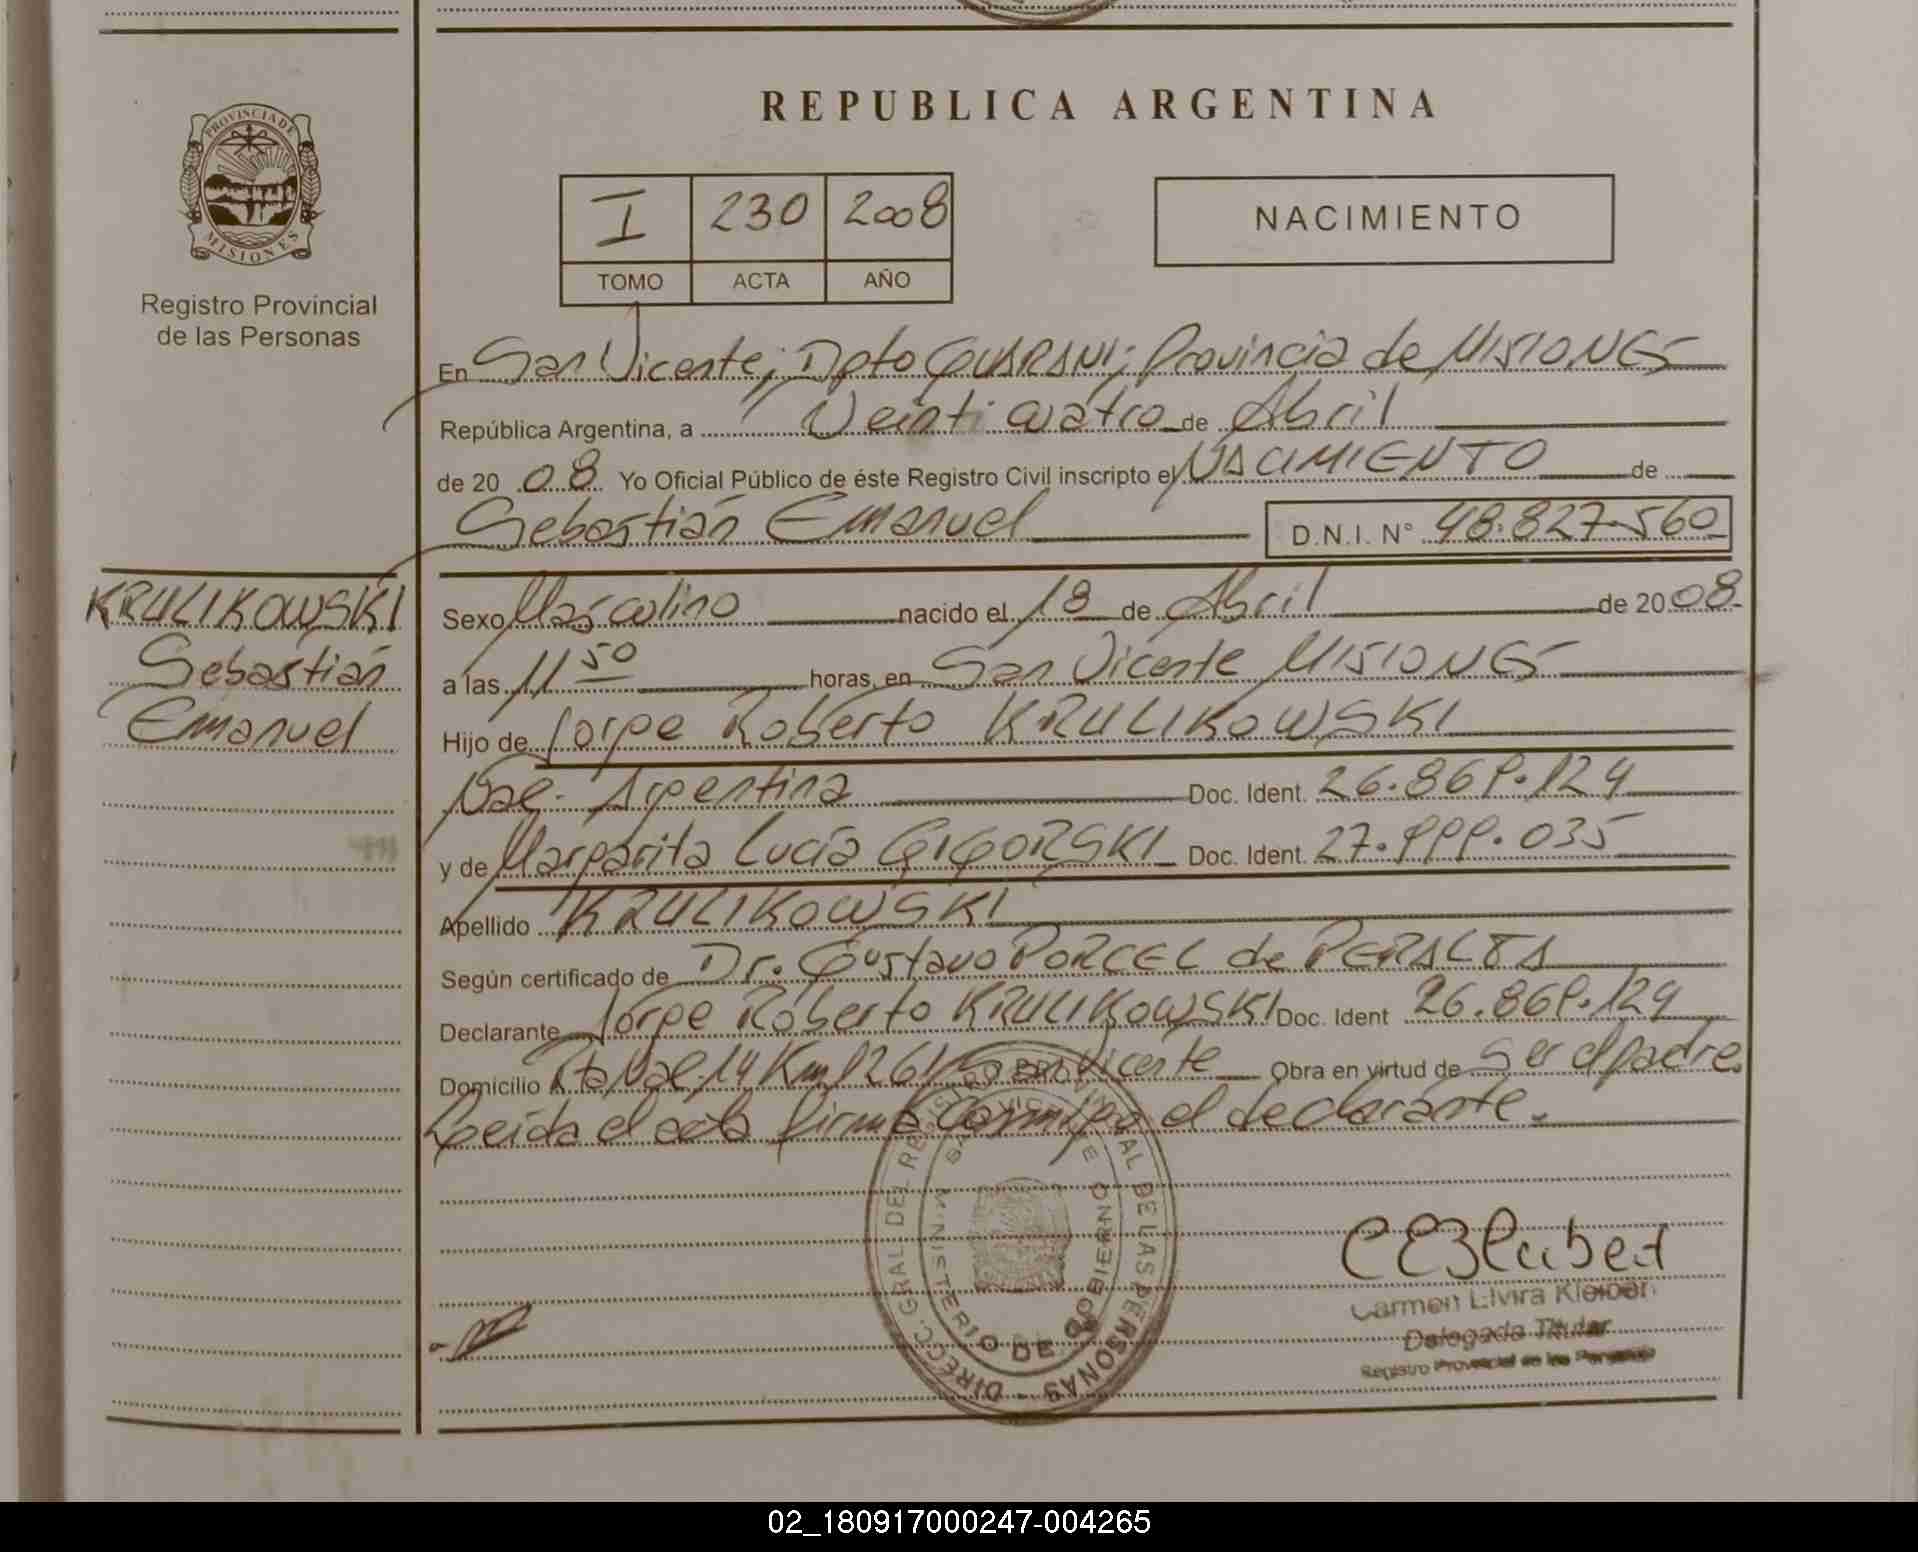 REPUBLICA ARGENTINA
PROVINCIA DE
MISIONES
Registro Provincial
de las Personas
I 230 2008
TOMO ACTA AÑO
NACIMIENTO
En San Vicente; Dpto GUARANI; Provincia de MISIONES
República Argentina, a Veinti cuatro de Abril
de 20 08 Yo Oficial Público de éste Registro Civil inscripto el NACIMIENTO de
Sebastián Emanuel D.N.I. N° 48.827.560
KRULIKOWSKI
Sebastián
Emanuel
Sexo Masculino nacido el 18 de Abril de 2008
a las 11 50 horas, en San Vicente MISIONES
Hijo de Jorge Roberto KRULIKOWSKI
Nac. Argentina Doc. Ident. 26.869.124
y de Margarita Lucía GIGORSKI Doc. Ident. 27.999.035
Apellido KRULIKOWSKI
Según certificado de Dr. Gustavo PORCEL de PERALTA
Declarante Jorge Roberto KRULIKOWSKI Doc. Ident 26.869.124
Domicilio Rta Nac. 14 Km 1261 San Vicente Obra en virtud de Ser el padre.
Leída el acta firma conmigo el declarante.
DIRECC. GRAL. DEL REGISTRO PROVINCIAL DE LAS PERSONAS
SAN VICENTE
MINISTERIO DE GOBIERNO
Carmen Elvira Kleiber
Delegada Titular
Registro Provincial de las Personas
02_180917000247-004265